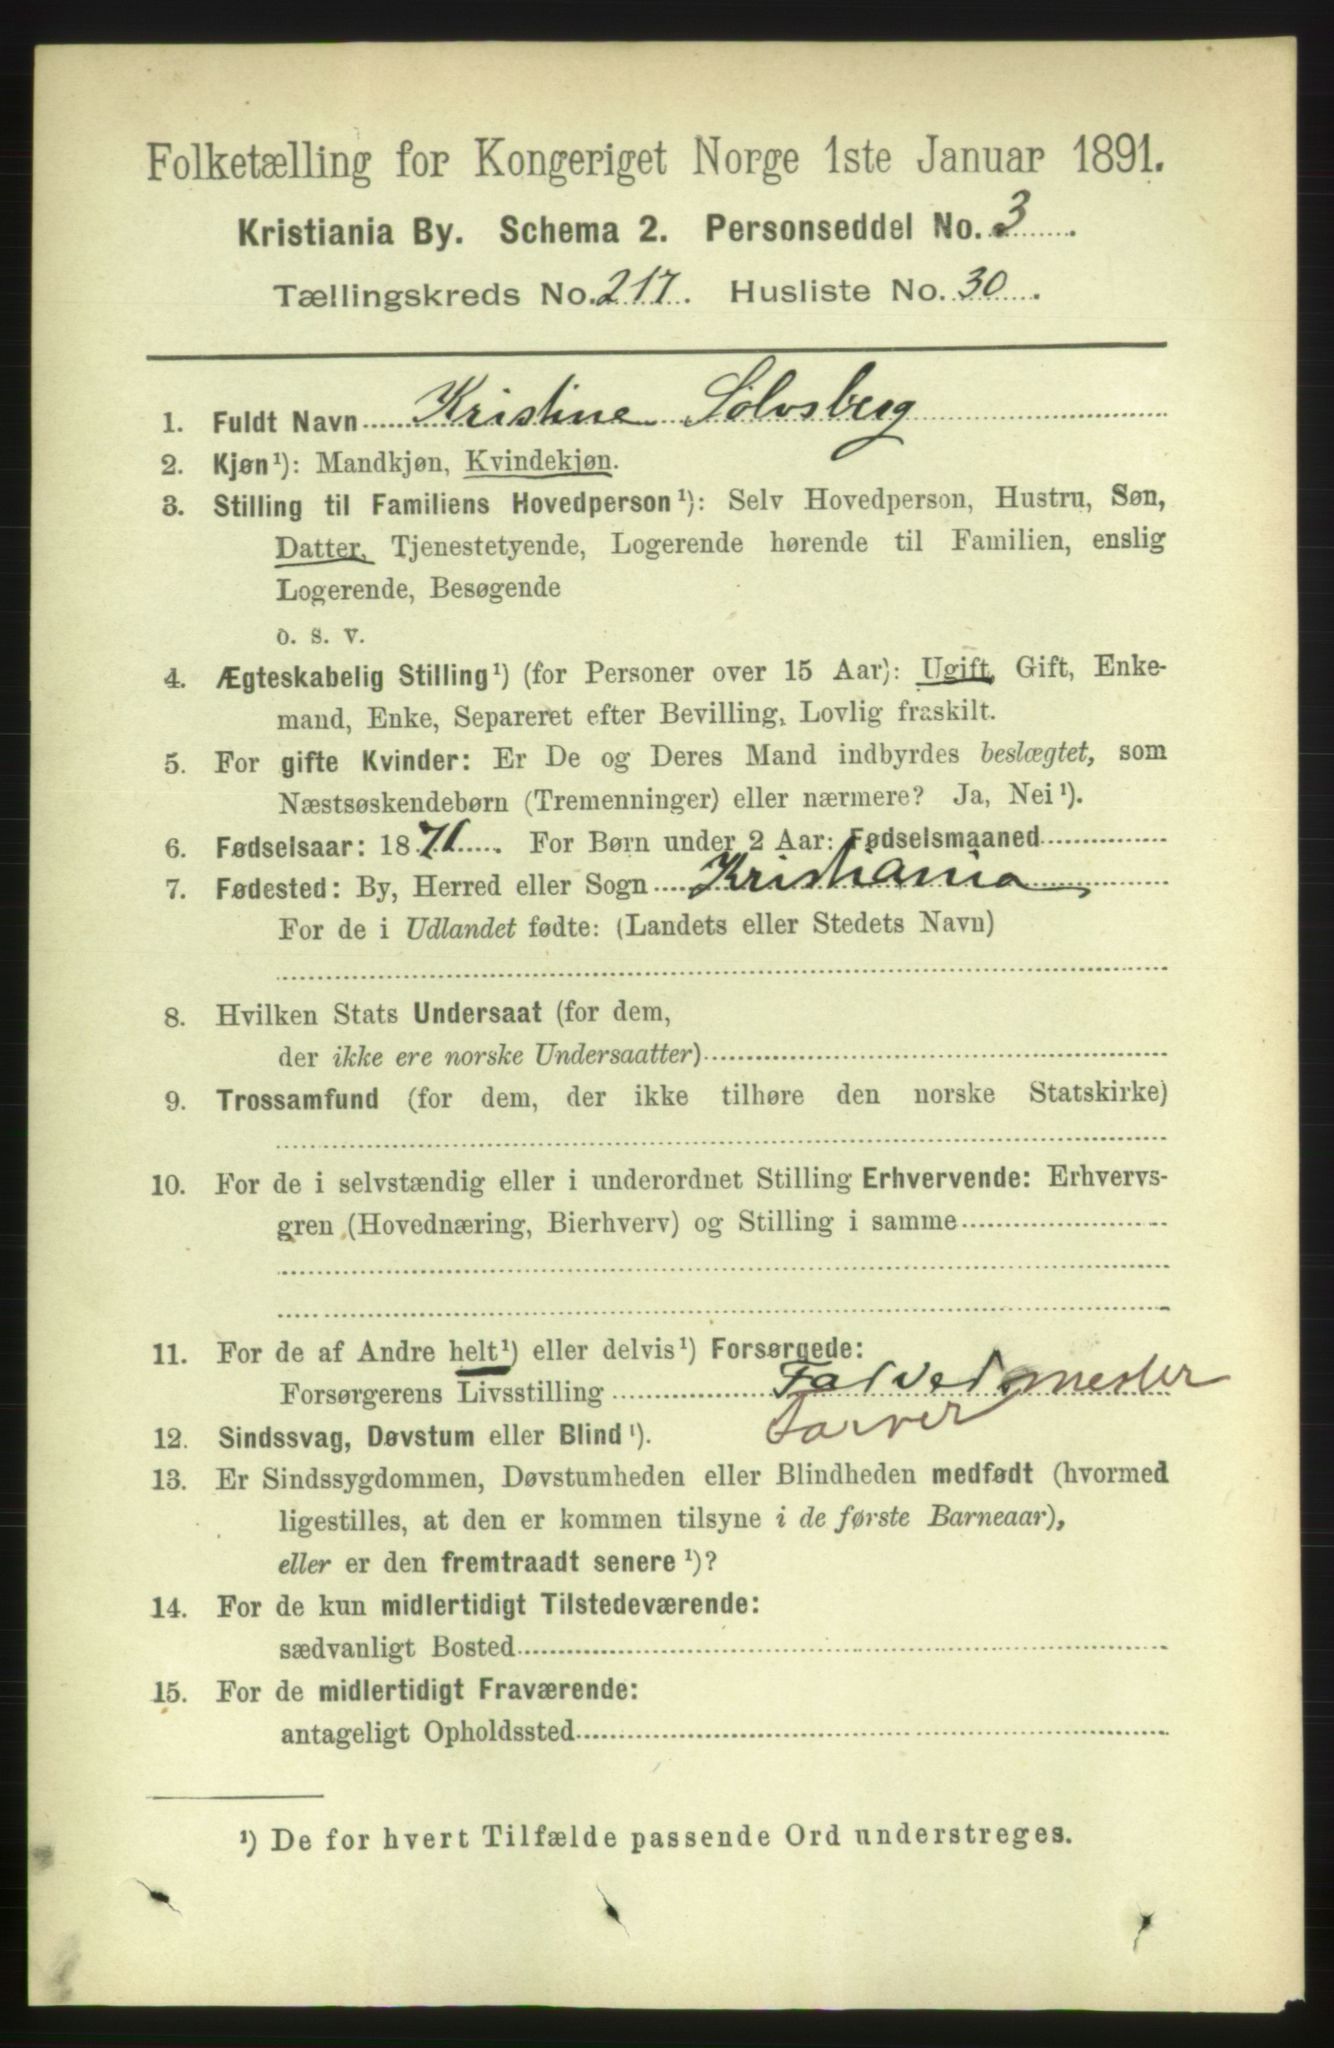 Folketælling for Kongeriget Norge 1ste Januar 1891.
Kristiania By. Schema 2. Personseddel No. 3.
Tællingskreds No. 217. Husliste No. 30.
1. Fuldt Navn Kristine Sølvsberg
2. Kjøn¹): Mandkjøn, Kvindekjøn.
3. Stilling til Familiens Hovedperson¹): Selv Hovedperson, Hustru, Søn,
Datter, Tjenestetyende, Logerende hørende til Familien, enslig
Logerende, Besøgende
o. s. v.
4. Ægteskabelig Stilling¹) (for Personer over 15 Aar): Ugift, Gift, Enke-
mand, Enke, Separeret efter Bevilling, Lovlig fraskilt.
5. For gifte Kvinder: Er De og Deres Mand indbyrdes beslægtet, som
Næstsøskendebørn (Tremenninger) eller nærmere? Ja, Nei¹).
6. Fødselsaar: 1871. For Børn under 2 Aar: Fødselsmaaned
7. Fødested: By, Herred eller Sogn Kristiania
For de i Udlandet fødte: (Landets eller Stedets Navn)
8. Hvilken Stats Undersaat (for dem,
der ikke ere norske Undersaatter)
9. Trossamfund (for dem, der ikke tilhøre den norske Statskirke)
10. For de i selvstændig eller i underordnet Stilling Erhvervende: Erhvervs-
gren (Hovednæring, Bierhverv) og Stilling i samme
11. For de af Andre helt¹) eller delvis¹) Forsørgede:
Forsørgerens Livsstilling mester
Garver
12. Sindssvag, Døvstum eller Blind¹).
13. Er Sindssygdommen, Døvstumheden eller Blindheden medfødt (hvormed
ligestilles, at den er kommen tilsyne i de første Barneaar),
eller er den fremtraadt senere¹)?
14. For de kun midlertidigt Tilstedeværende:
sædvanligt Bosted
15. For de midlertidigt Fraværende:
antageligt Opholdssted
¹) De for hvert Tilfælde passende Ord understreges.